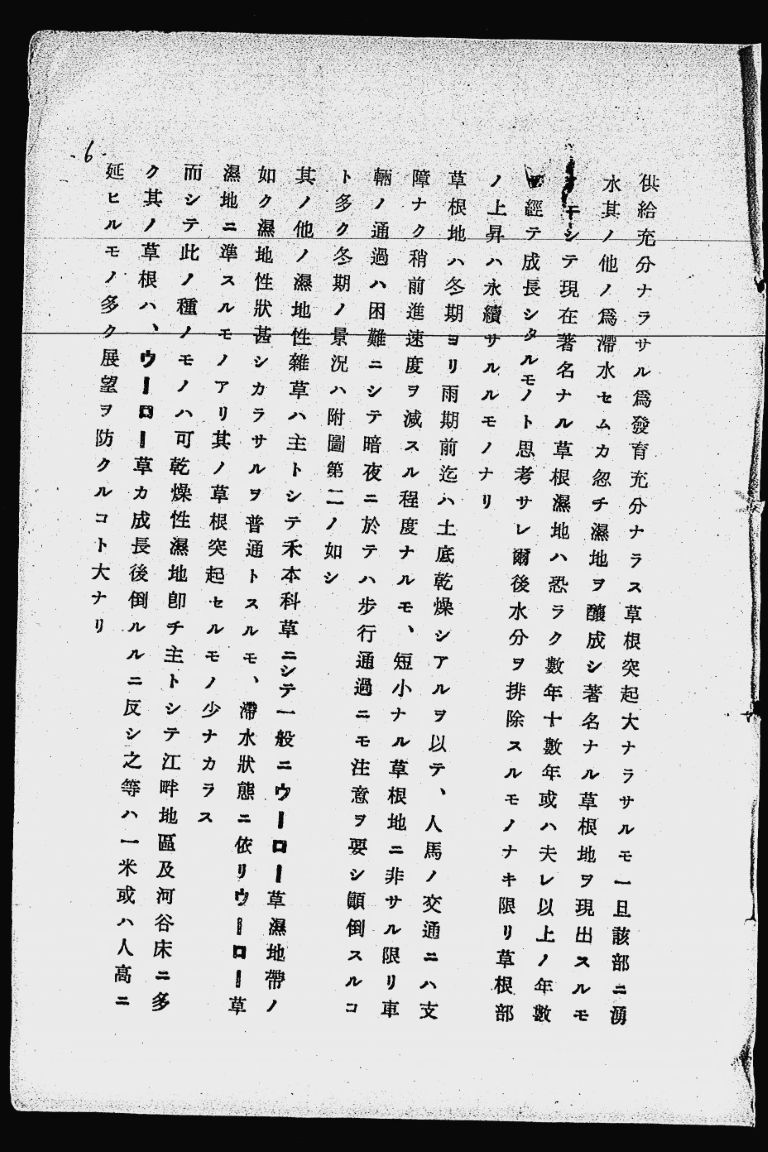 供給充分ナラサル爲發育充分ナラス草根突起大ナラサルモ一旦該部ニ湧
水其ノ他ノ爲滯水セムカ忽チ濕地ヲ釀成シ著名ナル草根地ヲ現出スルモ
シテ現在著名ナル草根濕地ハ恐ラク數年十數年或ハ夫レ以上ノ年數
經テ成長シタルモノト思考サレ爾後水分ヲ排除スルモノナキ限リ草根部
ノ上昇ハ永續サルルモノナリ
草根地ハ冬期ヨリ雨期前迄ハ土底乾燥シアルヲ以テ、人馬ノ交通ニハ支
障ナク稍前進速度ヲ減スル程度ナルモ、短小ナル草根地ニ非サル限リ車
輛ノ通過ハ困難ニシテ暗夜ニ於テハ步行通過ニモ注意ヲ要シ顚倒スルコ
ト多ク冬期ノ景況ハ附圖第二ノ如シ
其ノ他ノ濕地性雜草ハ主トシテ禾本科草ニシテ一般ニウーロー草濕地帶ノ
如ク濕地性狀甚シカラサルヲ普通トスルモ、滯水狀態ニ依リウーロー草
濕地ニ準スルモノアリ其ノ草根突起セルモノ少ナカラス
而シテ此ノ種ノモノハ可乾燥性濕地卽チ主トシテ江畔地區及河谷床ニ多
ク其ノ草根ハ、ウーロー草カ成長後倒ルルニ反シ之等ハ一米或ハ人高ニ
延ヒルモノ多ク展望ヲ防クルコト大ナリ
6